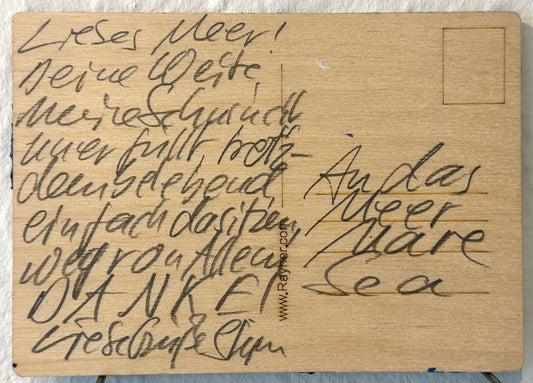 Liebes Meer!
Deine Weite,
meine Sehnsucht
unerfüllt trotz-
dem belebend,
einfach dasitzen,
weg von Allem!
DANKE!
Liebe Grüße
An das
Meer
Mare
Sea